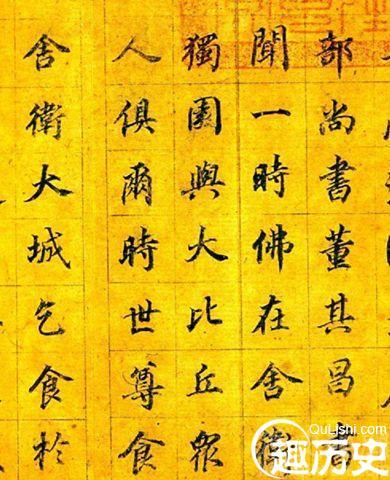 部尚書董其昌
聞一時佛在舍衛
獨園與大比丘衆
人俱爾時世尊食
舍衛大城乞食於
QuLishi.com
趣历史